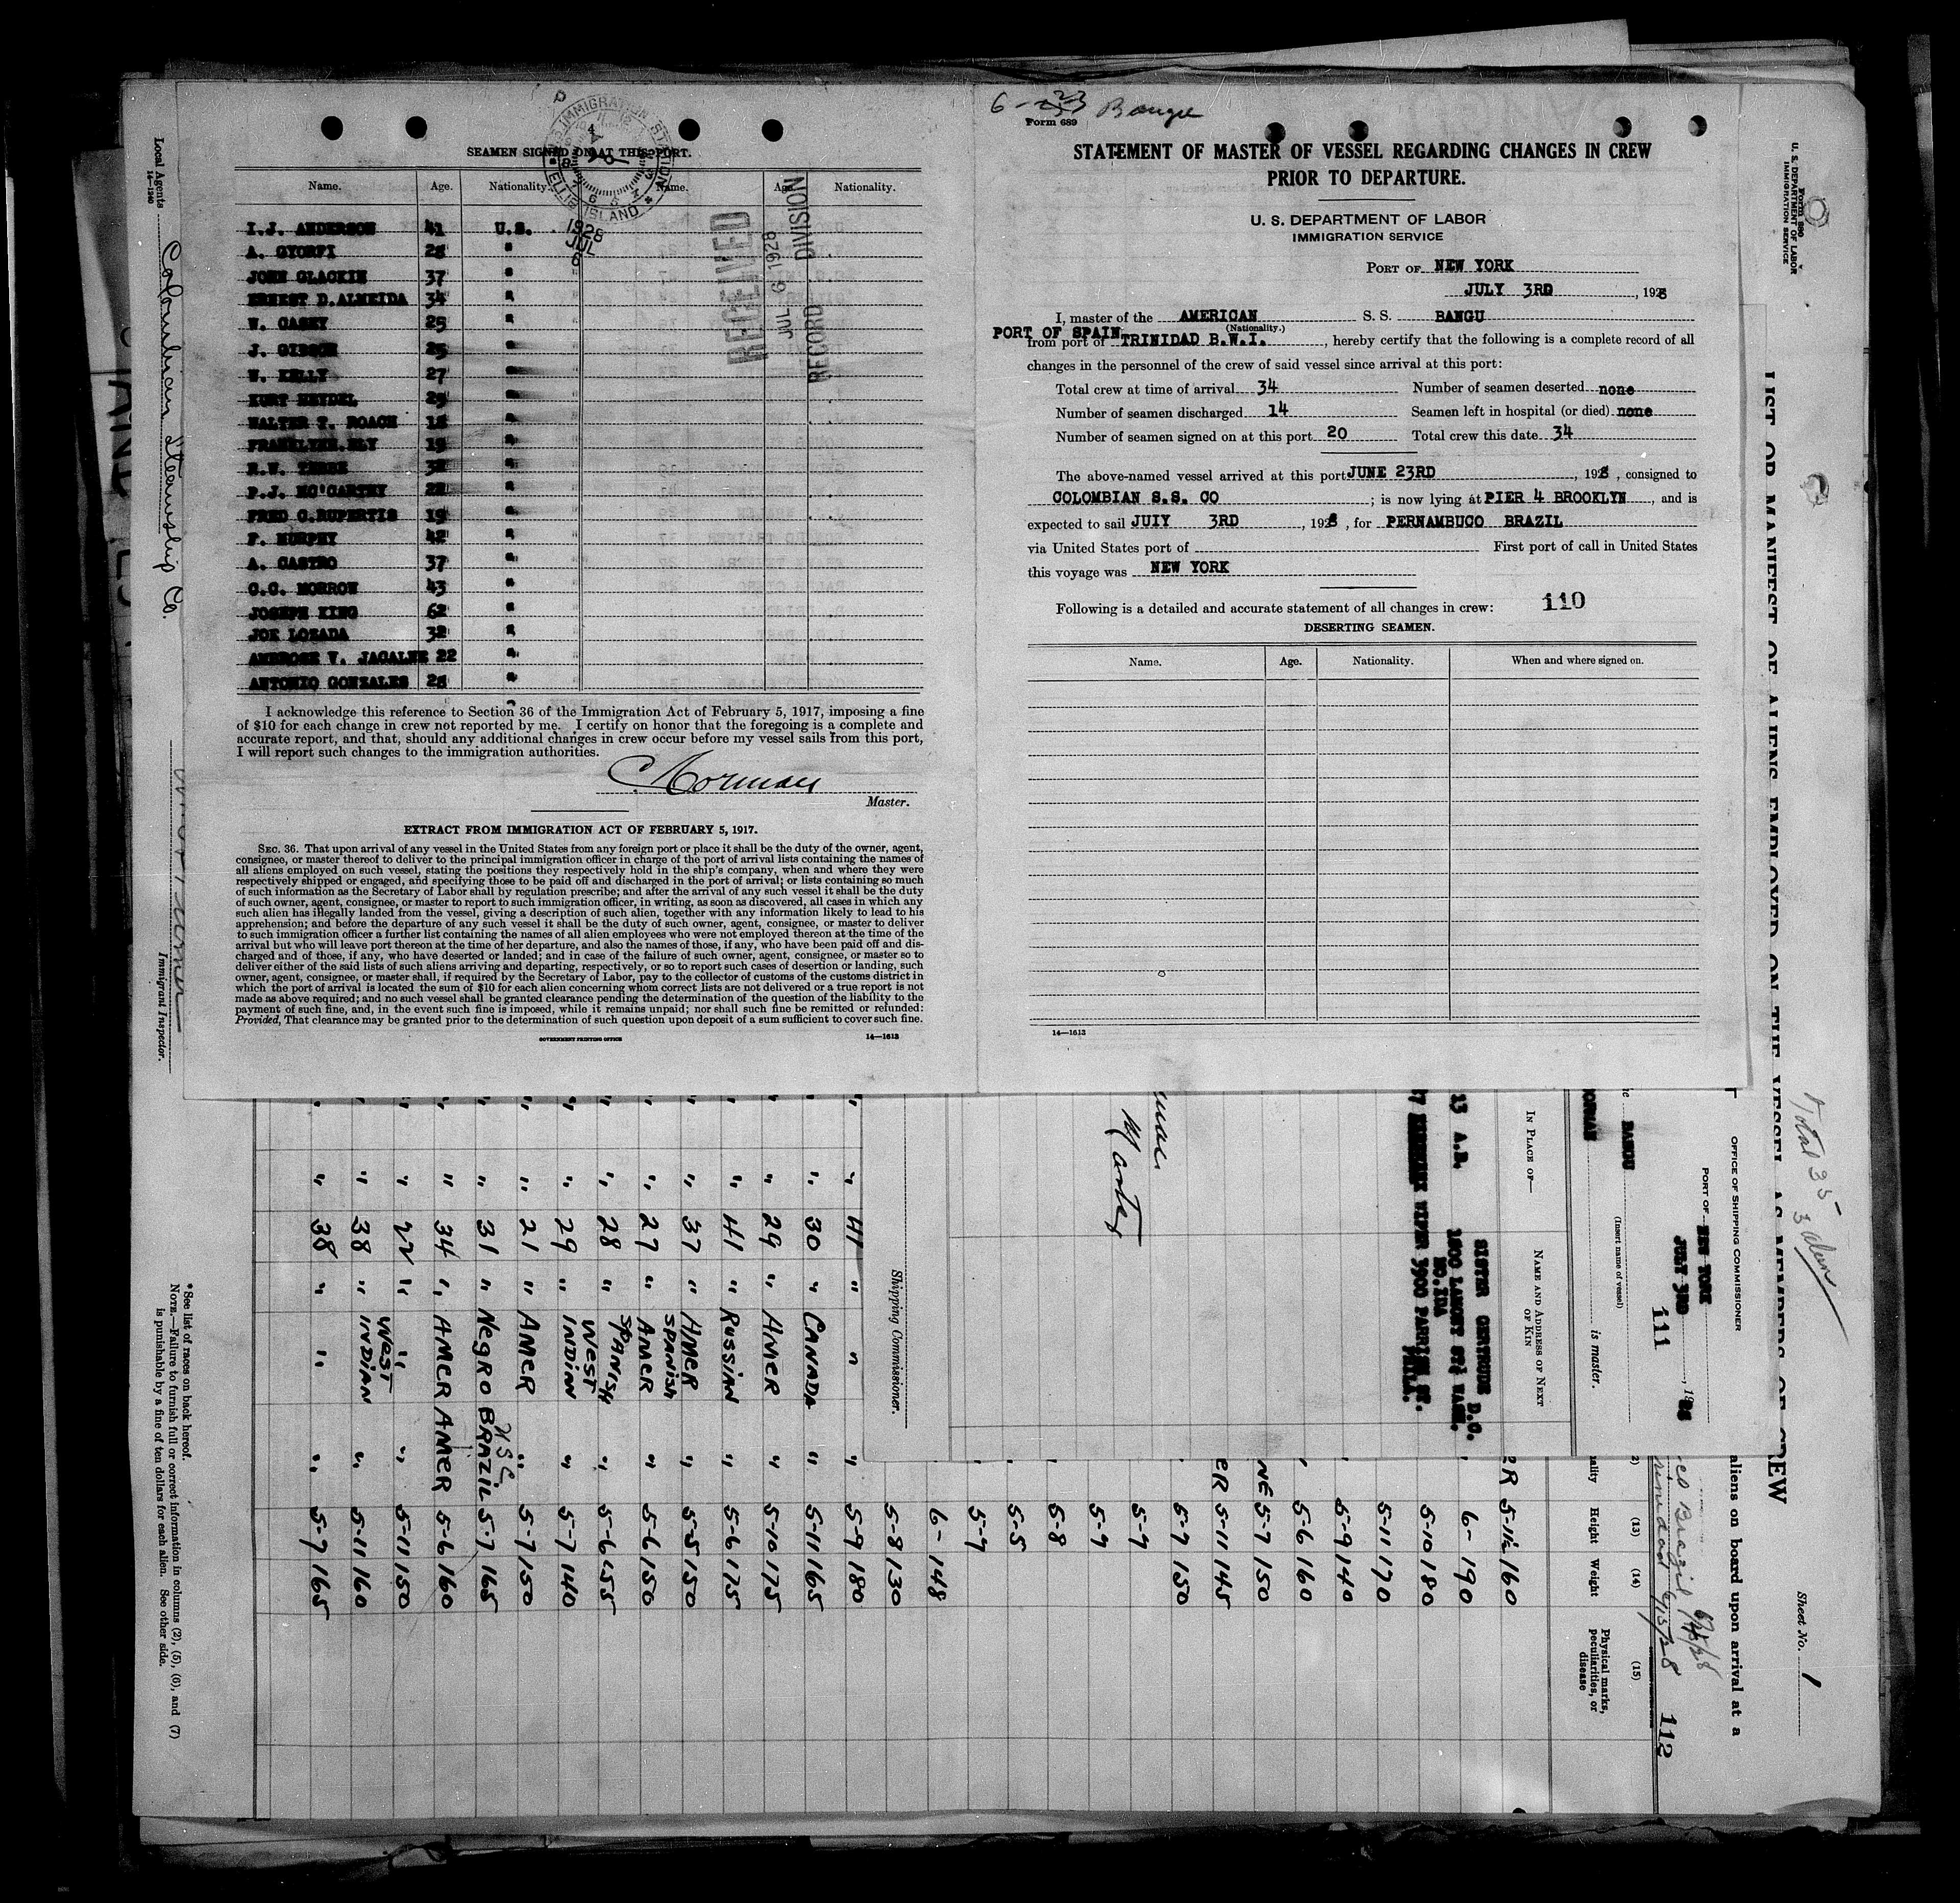 SEAMEN SIGNED ON AT THIS PORT.
Name. Age. Nationality. Name. Age. Nationality.
I.J. ANDERSON 41 U.S.
A. GYORFI 28 "
JOHN GLACKIN 37 "
ERNEST D.ALMEIDA 34 "
W. CASEY 25 "
J. GIBSON 25 "
W. KELLY 27 "
KURT HEYDEL 29 "
WALTER T. ROACH 18 "
ELY 19 "
R.W. 32 "
P.J. MC'CARTHY 22 "
FRED C.RUPERTIS 19 "
F. MURPHY 42 "
A. CASTRO 37 "
C.C. MORROW 43 "
JOSEPH KING 62 "
JOE LOZADA 32 "
AMBROSE V. JAGALNE 22 "
ANTONIO GONZALES 28 "
IMMIGRATION STATION
ELLIS ISLAND
1928
JUL
6
RECEIVED
JUL 6 1928
RECORD DIVISION
I acknowledge this reference to Section 36 of the Immigration Act of February 5, 1917, imposing a fine
of $10 for each change in crew not reported by me. I certify on honor that the foregoing is a complete and
accurate report, and that, should any additional changes in crew occur before my vessel sails from this port,
I will report such changes to the immigration authorities.
C Norman
Master.
EXTRACT FROM IMMIGRATION ACT OF FEBRUARY 5, 1917.
SEC. 36. That upon arrival of any vessel in the United States from any foreign port or place it shall be the duty of the owner, agent,
consignee, or master thereof to deliver to the principal immigration officer in charge of the port of arrival lists containing the names of
all aliens employed on such vessel, stating the positions they respectively hold in the ship's company, when and where they were
respectively shipped or engaged, and specifying those to be paid off and discharged in the port of arrival; or lists containing so much
of such information as the Secretary of Labor shall by regulation prescribe; and after the arrival of any such vessel it shall be the duty
of such owner, agent, consignee, or master to report to such immigration officer, in writing, as soon as discovered, all cases in which any
such alien has illegally landed from the vessel, giving a description of such alien, together with any information likely to lead to his
apprehension; and before the departure of any such vessel it shall be the duty of such owner, agent, consignee, or master to deliver
to such immigration officer a further list containing the names of all alien employees who were not employed thereon at the time of the
arrival but who will leave port thereon at the time of her departure, and also the names of those, if any, who have been paid off and dis-
charged and of those, if any, who have deserted or landed; and in case of the failure of such owner, agent, consignee, or master so to
deliver either of the said lists of such aliens arriving and departing, respectively, or so to report such cases of desertion or landing, such
owner, agent, consignee, or master shall, if required by the Secretary of Labor, pay to the collector of customs of the customs district in
which the port of arrival is located the sum of $10 for each alien concerning whom correct lists are not delivered or a true report is not
made as above required; and no such vessel shall be granted clearance pending the determination of the question of the liability to the
payment of such fine, and, in the event such fine is imposed, while it remains unpaid; nor shall such fine be remitted or refunded:
Provided, That clearance may be granted prior to the determination of such question upon deposit of a sum sufficient to cover such fine.
GOVERNMENT PRINTING OFFICE 14—1613
6 - 23 Bangu
Form 689
STATEMENT OF MASTER OF VESSEL REGARDING CHANGES IN CREW
PRIOR TO DEPARTURE.
U. S. DEPARTMENT OF LABOR
IMMIGRATION SERVICE
PORT OF NEW YORK
JULY 3RD, 1928
I, master of the AMERICAN S. S. BANGU
(Nationality.)
PORT OF SPAIN
from port of TRINIDAD B.W.I., hereby certify that the following is a complete record of all
changes in the personnel of the crew of said vessel since arrival at this port:
Total crew at time of arrival 34 Number of seamen deserted none
Number of seamen discharged 14 Seamen left in hospital (or died) none
Number of seamen signed on at this port 20 Total crew this date 34
The above-named vessel arrived at this port JUNE 23RD, 1928, consigned to
COLOMBIAN S.S. CO; is now lying at PIER 4 BROOKLYN, and is
expected to sail JULY 3RD, 1928, for PERNAMBUCO BRAZIL
via United States port of First port of call in United States
this voyage was NEW YORK
Following is a detailed and accurate statement of all changes in crew: 110
DESERTING SEAMEN.
Name. Age. Nationality. When and where signed on.
14—1613
Local Agents Columbian Steamship Co.
14—1240
Immigrant Inspector.
*See list of races on back hereof.
NOTE.—Failure to furnish full or correct information in columns (2), (5), (6), and (7)
is punishable by a fine of ten dollars for each alien. See other side.
Form 680
U. S. DEPARTMENT OF LABOR
IMMIGRATION SERVICE
LIST OR MANIFEST OF ALIENS EMPLOYED ON THE VESSEL AS MEMBERS OF CREW
Sheet No. 1
Total 35
3 alien
aliens on board upon arrival at a
Brazil
Trinidad 6/15/28 112
OFFICE OF SHIPPING COMMISSIONER
PORT OF NEW YORK
JULY 3RD, 1928
111
BANGU
(Insert name of vessel)
is master.
IN PLACE OF— NAME AND ADDRESS OF NEXT OF KIN
13 A.B. SISTER GERTRUDE
D.C.
WIFE 3900 PARRISH ST.
PHILA.
Master
Shipping Commissioner.
(13) (14) (15)
Height Weight Physical marks, peculiarities, or disease
5-11½ 160
6- 190
5-10 180
5-11 170
5-9 140
5-6 160
5-7 150
5-11 145
5-7 150
5-7
5-7
5-8
5-5
5-7
6- 148
5-8 130
" 41 " " " 5-9 180
" 30 " CANADA " 5-11 165
" 29 " AMER " 5-10 175
" 41 " RUSSIAN " 5-6 175
" 37 " AMER SPANISH " 5-5 150
" 27 " AMER " 5-6 150
" 28 " SPANISH " 5-6 155
" 29 " WEST INDIAN " 5-7 140
" 21 " AMER " 5-7 150
" 31 " NEGRO BRAZIL USC 5-7 165
" 34 " AMER AMER 5-6 160
" 22 " " " 5-11 150
" 38 " WEST INDIAN " 5-11 160
" 38 " " " 5-7 165